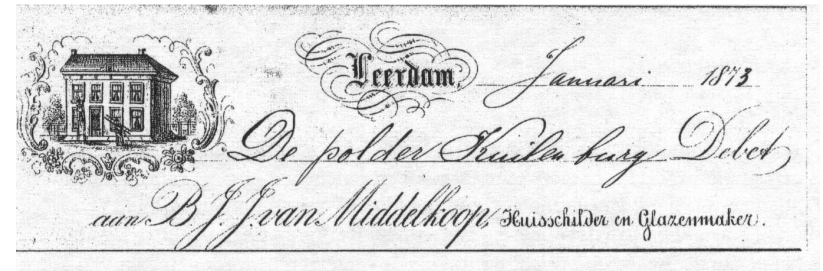 Leerdam, Januari 1873
De polder Kuilenburg Debet,
aan B. J. J. van Middelkoop, Huisschilder en Glazenmaker.